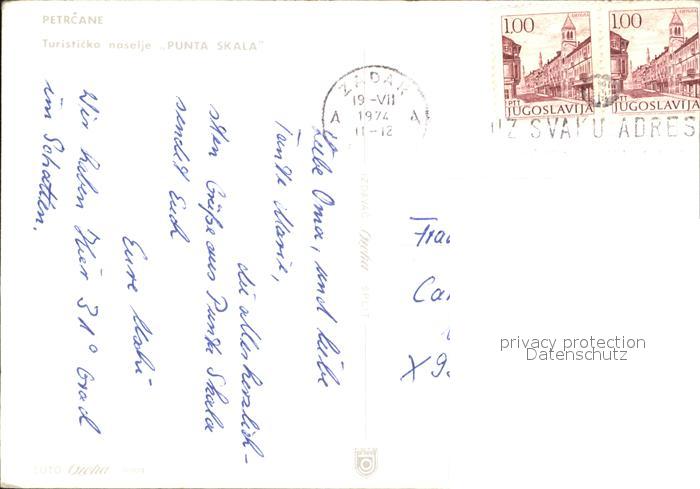 PETRČANE
Turističko naselje „PUNTA SKALA”
1.00
PTT JUGOSLAVIJA
1.00
PTT JUGOSLAVIJA
ZADAR
19-VII
1974
11-12
A A
UZ SVAKU ADRES
Liebe Oma, und liebe
Tante Marie,
die allerherzlich-
sten Grüße aus Punta Skala
sendet Euch
Eure
Wir haben hier 31° Grad
im Schatten.
IZDAVAČ SPLIT
FOTO
X9
privacy protection
Datenschutz